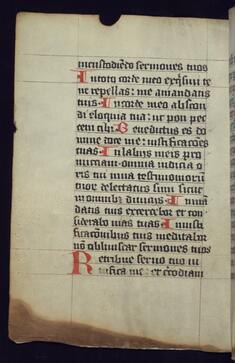 incustodiẽdo sermones tuos
In toto corde meo exq̃siui te
ne repellas: me a mandatis
tuis. In corde meo abscon
di eloquia tua: ut non pec
cem tibi. Benedictus es do
mine doce me: iustificacões
tuas. In labiis meis pro
nuciaui omnia iudicia o
ris tui. In uia testimoniorũ
tuor delectatus sum sicut
in omnibꝫ diuiciis. In man
datis tuis exercebor et con
siderabo uias tuas. In iusti
ficacionibus tuis meditabor
nõ obliuiscar sermones tuos
Retribue seruo tuo ui
uifica me: et custodiam